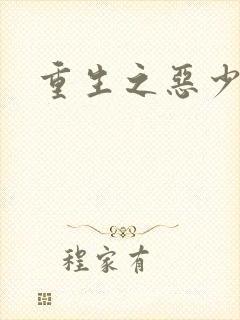 重生之惡少
程家有